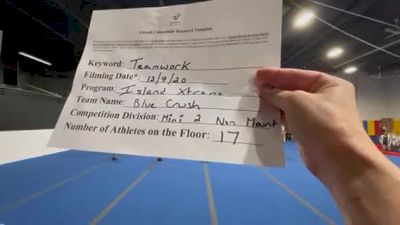 Virtual Competition Keyword Template
Keyword: Teamwork
Filming Date*: 12/9/20
Program: Island Xtreme
Team Name: Blue Crush
Competition Division: Mini 2 Non Mount
Number of Athletes on the Floor: 17